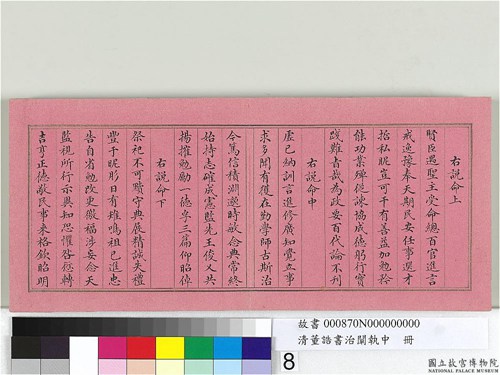 右說命上
賢臣遇聖主受命總百官進言
戒逸豫奉天期民安任事選才
招私昵豈可干有善益加勉矜
能功業殫從諫協成德躬行實
踐難書哉為政要百代論不刊
右說命中
虛己納訓言進修廣知覺立事
求多聞有獲在勤學師古斯治
今篤信積淵邃時敏念典常終
始持志確咸憲監先王俊乂共
揚摧勉勵一德孚三篇仰昭倬
右說命下
祭祀不可黷守典展精誠失禮
豐于昵肜日有雉鳴祖已進忠
告自省勉改更徼福涉妄念天
監視所行示異知恐懼咎愆轉
吉亨正德敬民事来格欽昭明
故書 000870N000000000
清董誥書治闡執中 冊
8
國立故宮博物院
NATIONAL PALACE MUSEUM